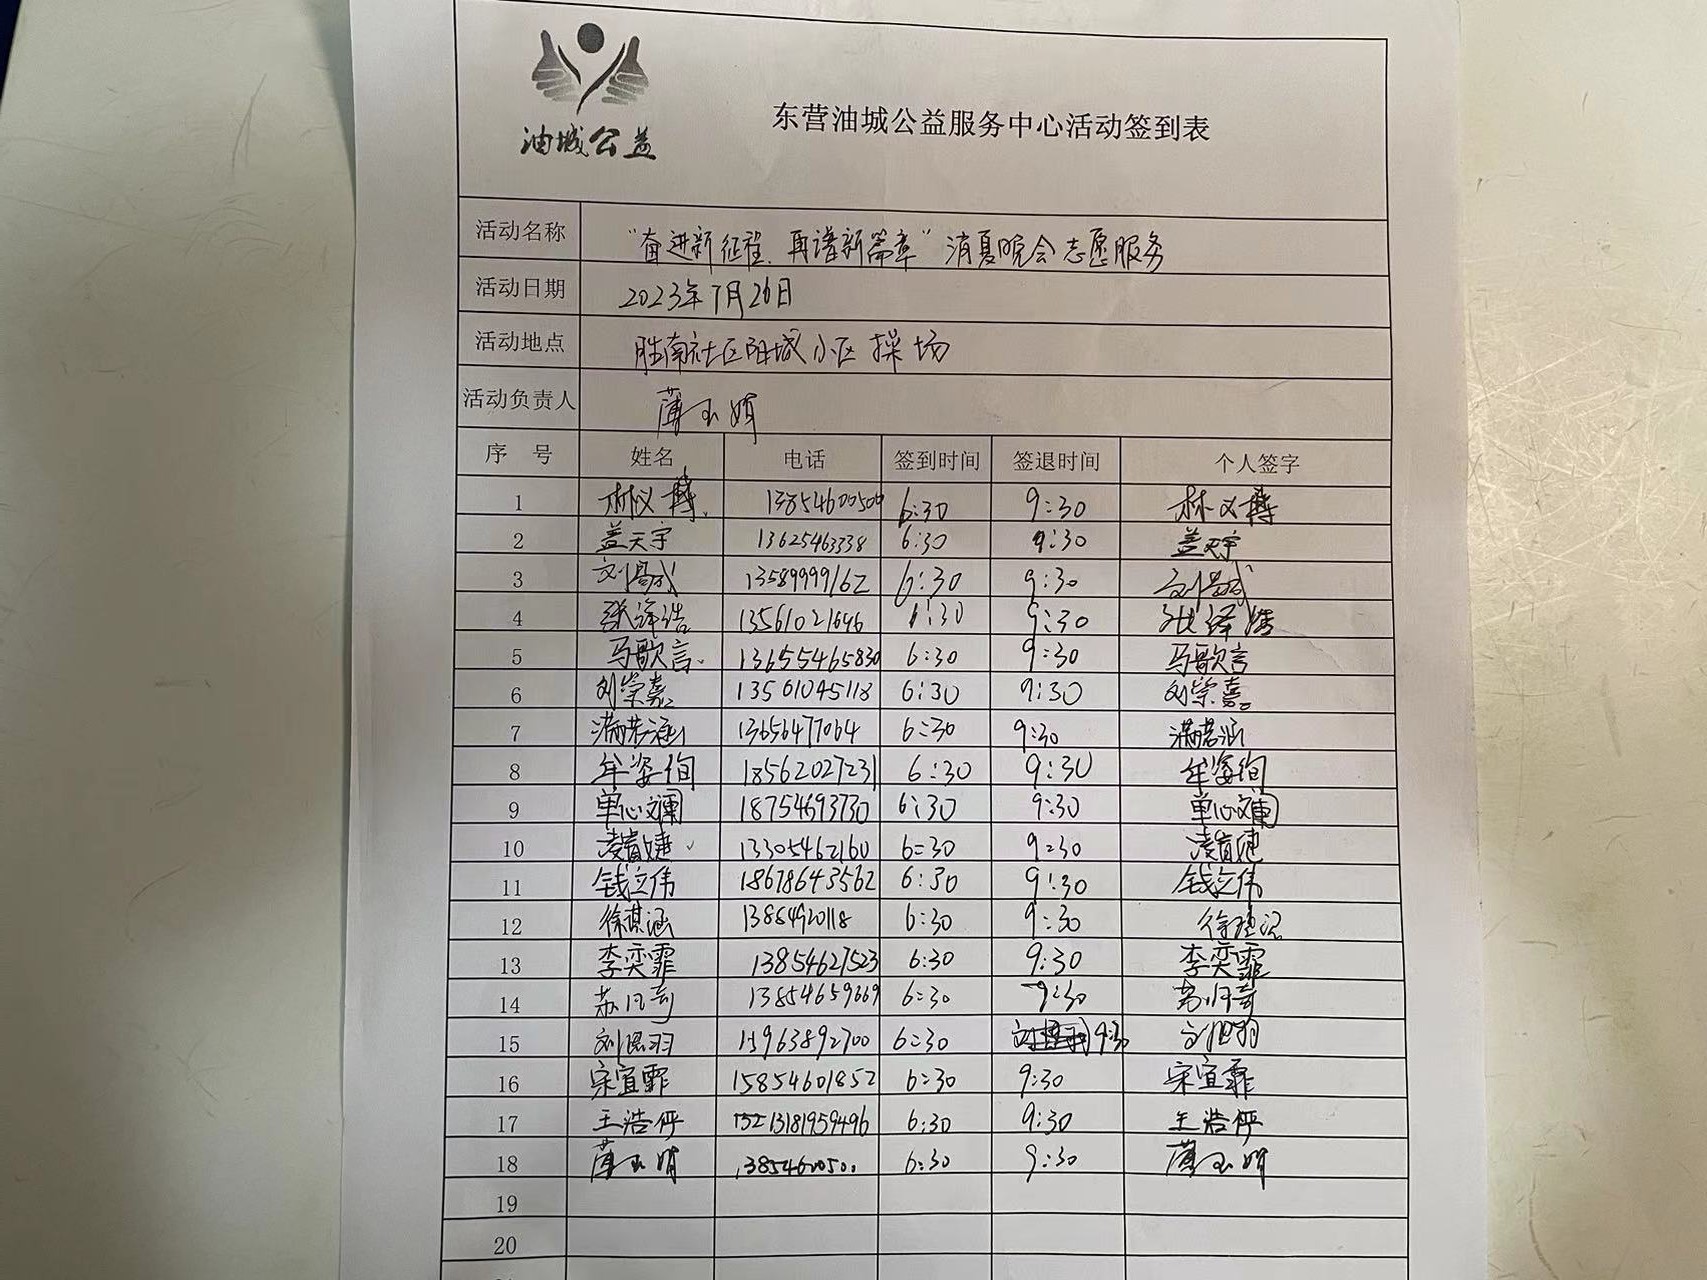 油城公益
东营油城公益服务中心活动签到表
活动名称 “奋进新征程,再谱新篇章”消夏晚会志愿服务
活动日期 2023年7月26日
活动地点 胜南社区阳城小区操场
活动负责人 薄玉娟
序号 姓名 电话 签到时间 签退时间 个人签字
1 林义博 13854600500 6:30 9:30 林义博
2 盖天宇 13625463338 6:30 9:30 盖天宇
3 13589999162 6:30 9:30
4 张泽浩 13561021646 6:30 9:30 张泽浩
5 马歌言 13655465830 6:30 9:30 马歌言
6 刘崇嘉 13561045118 6:30 9:30 刘崇嘉
7 满若涵 13656477064 6:30 9:30 满若涵
8 牟姿徇 18562027231 6:30 9:30 牟姿徇
9 单心斓 18754693730 6:30 9:30 单心斓
10 13305462160 6:30 9:30
11 钱立伟 18678643562 6:30 9:30 钱立伟
12 徐琪涵 13864920118 6:30 9:30
13 李奕霏 13854627523 6:30 9:30 李奕霏
14 13854659669 6:30 9:30
15 15963892700 6:30 9:30
16 宋宜霏 15854601852 6:30 9:30 宋宜霏
17 王浩伊 13181959496 6:30 9:30 王浩伊
18 薄玉娟 1385460050 6:30 9:30 薄玉娟
19
20